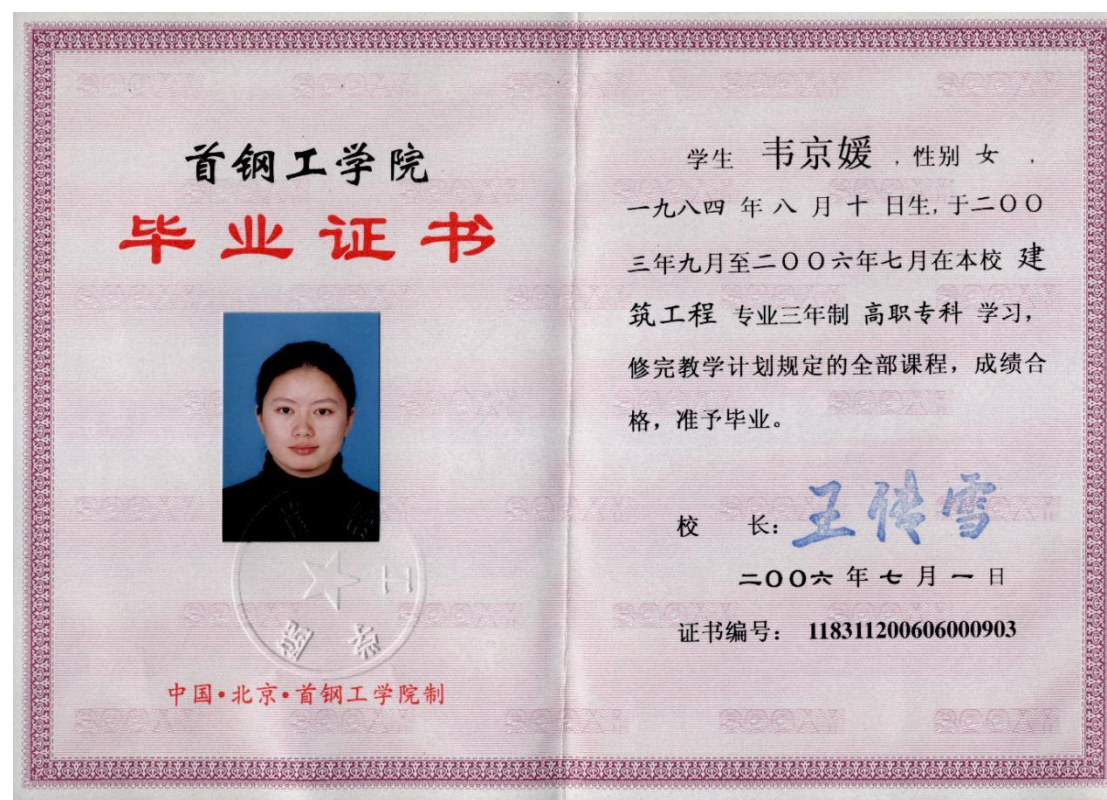 首钢工学院
毕业证书
中国·北京·首钢工学院制
学生 韦京媛 , 性别 女 ,
一九八四 年 八 月 十 日生, 于二〇〇
三年九月至二〇〇六年七月在本校 建
筑工程 专业三年制 高职专科 学习,
修完教学计划规定的全部课程，成绩合
格，准予毕业。
校 长: 王传雪
二〇〇六 年 七 月 一 日
证书编号: 118311200606000903